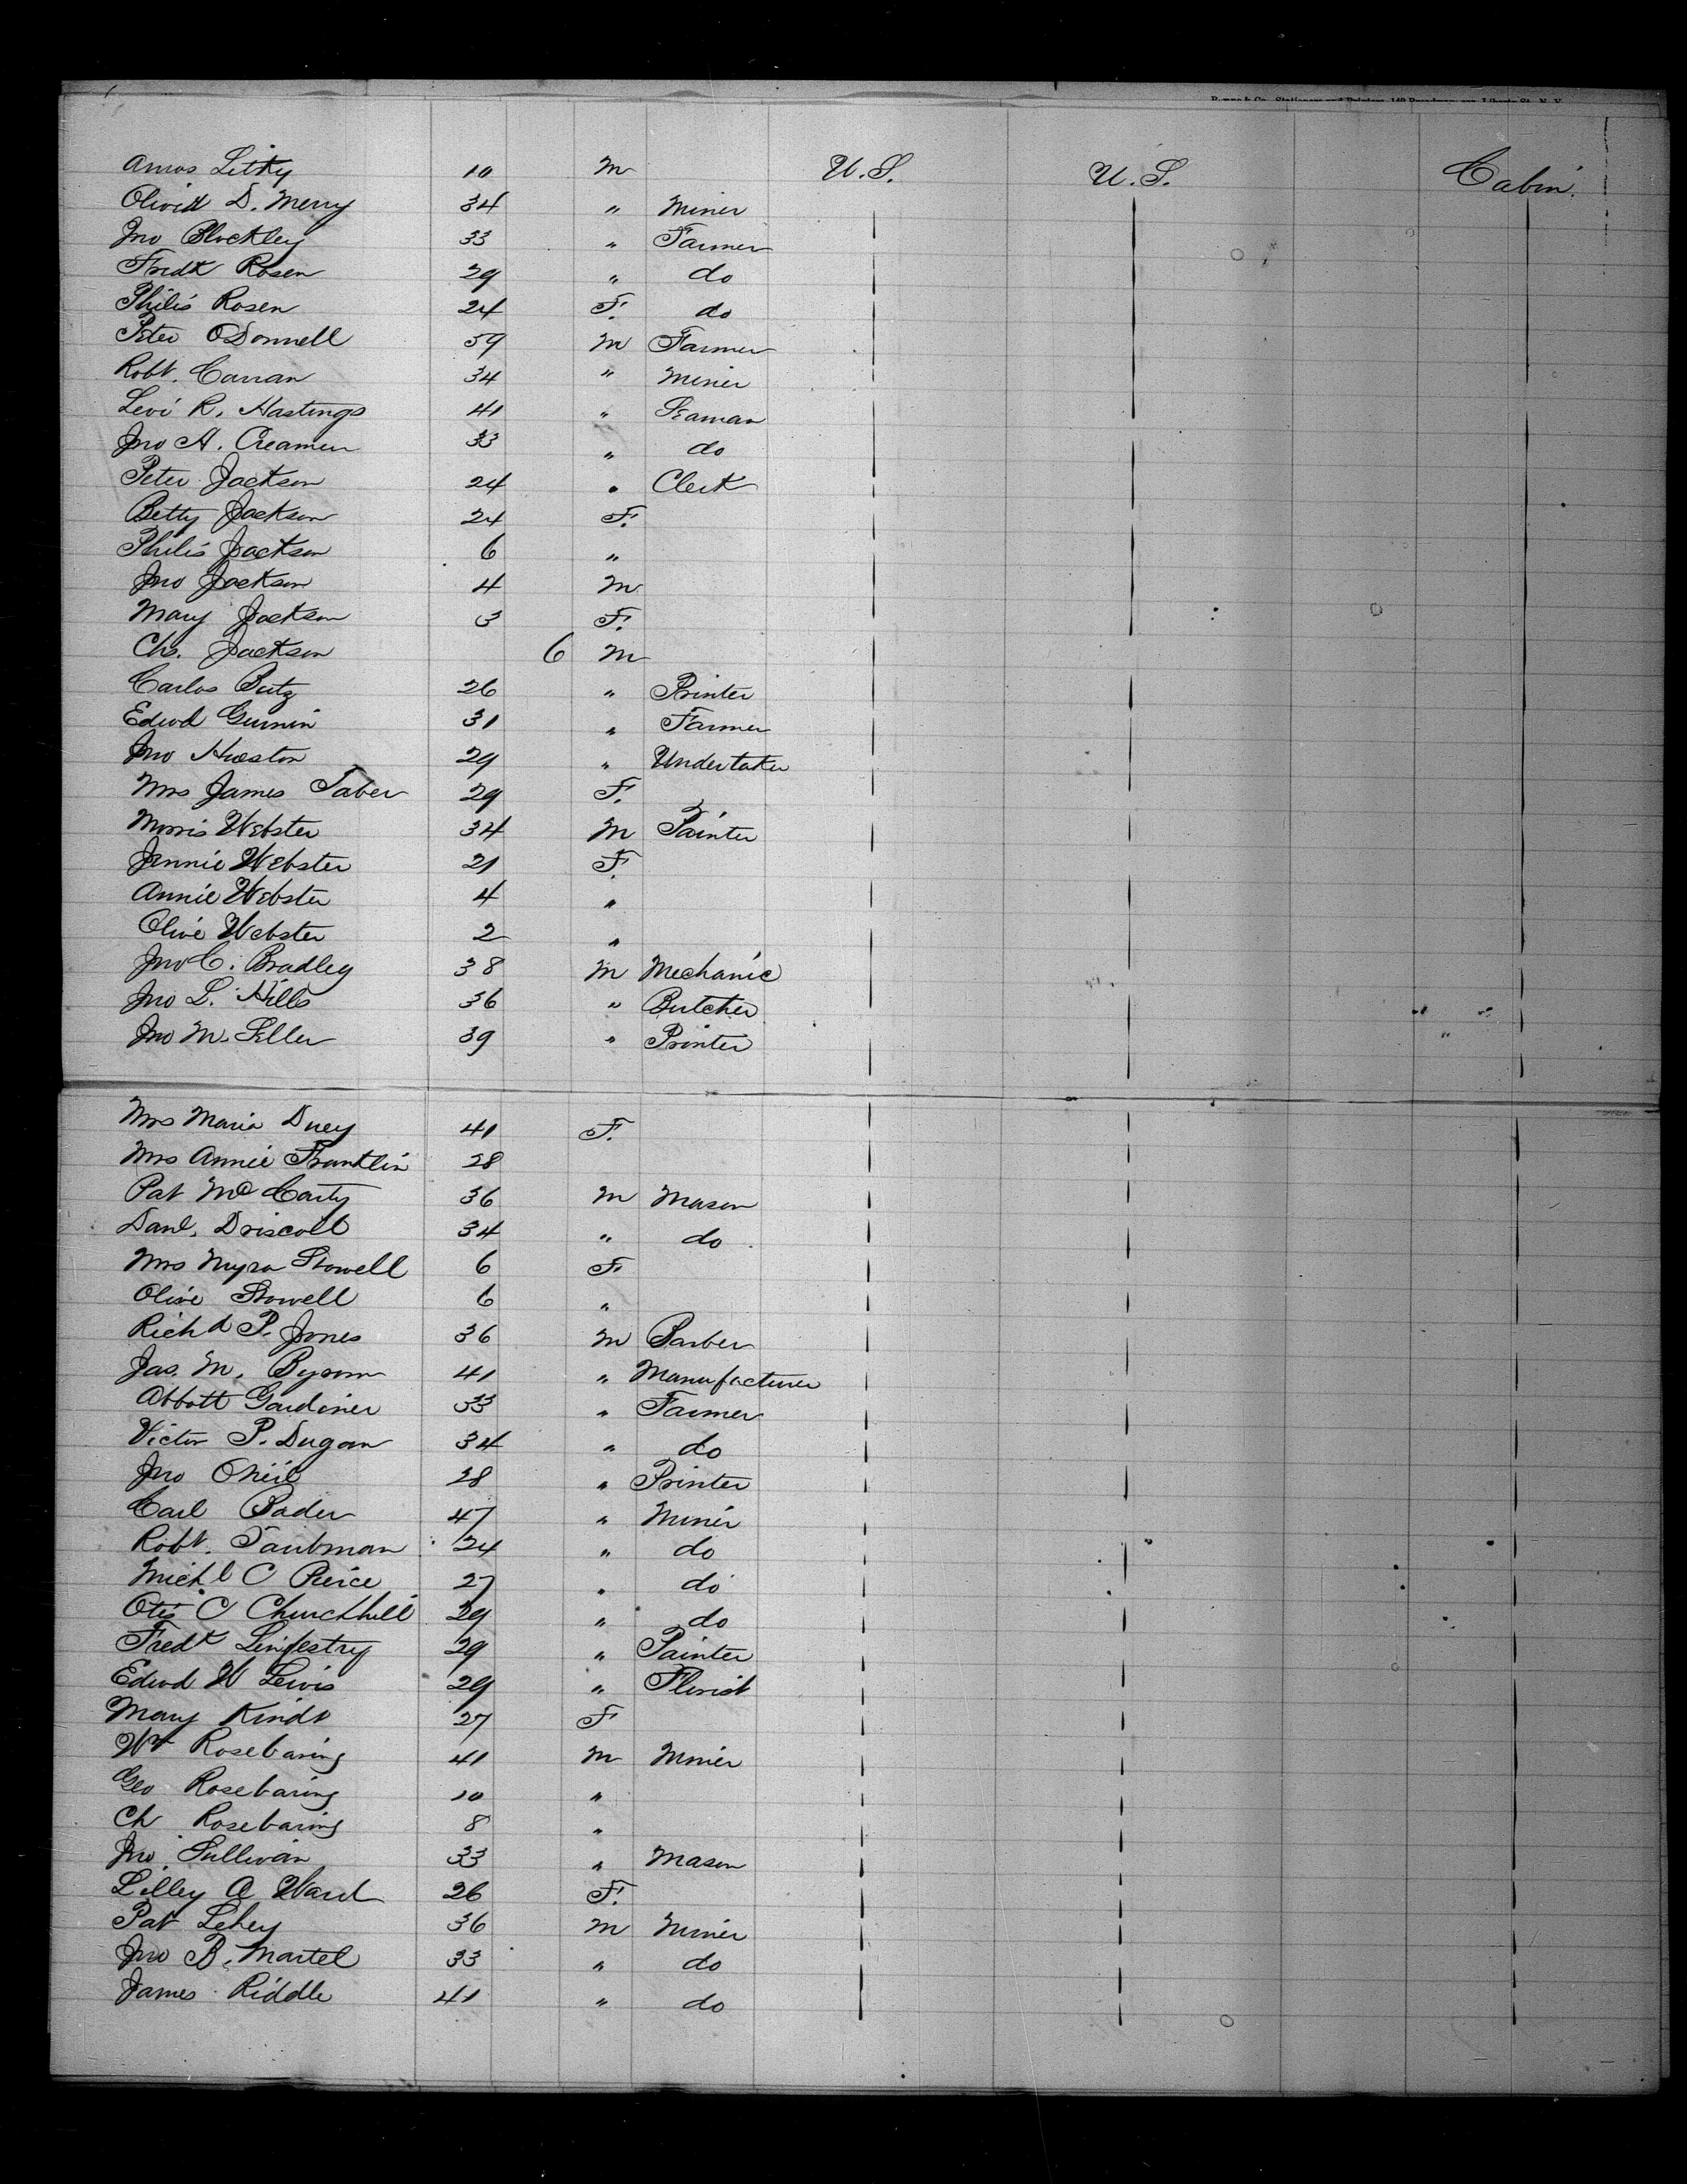 Bynne & Co., Stationers and Printers, 149 Broadway, cor. Liberty St., N. Y.
Amos Litky 10 M U.S. U.S. Cabin
D. Merry 34 " Miner
Jno Blockley 33 " Farmer
Fredk Rosen 29 " do
Philis Rosen 24 F. do
Peter ODonnell 59 M Farmer
Robt. Curran 34 " Miner
Levi R. Hastings 41 " Seaman
Jno A. Creamer 33 " do
Peter Jackson 24 " Clerk
Betty Jackson 24 F.
Philis Jackson 6 "
Jno Jackson 4 M
Mary Jackson 3 F.
Chs. Jackson 6 M
Carlos Butz 26 " Printer
Edwd 31 " Farmer
Jno Hueston 29 " Undertaker
Mrs James Taber 29 F.
Morris Webster 34 M Painter
Jennie Webster 21 F.
Annie Webster 4 "
Olive Webster 2 "
Jno C. Bradley 38 M Mechanic
Jno L. Hills 36 " Butcher
Jno M. Seller 39 " Printer
Mrs Maria Duey 41 F.
Mrs Annie Franklin 28
Pat McCarty 36 M Mason
Danl. Driscoll 34 " do
Mrs Myra Stowell 6 F
Olive Stowell 6 "
Richd P. Jones 36 M Barber
Jas. M. Byrom 41 " Manufacturer
Abbott Gardiner 33 " Farmer
Victor P. Dugan 34 " do
Jno ONeil 28 " Printer
Carl Bader 47 " Miner
Robt. Taubman 24 " do
Michl C Peirce 27 " do
Otis C Churchhill 29 " do
Fredk 29 " Painter
Edwd W Lewis 29 " Florist
Mary Kindt 27 F
Wm Rosebaring 41 M Miner
Geo Rosebaring 10 "
Ch Rosebaring 8 "
Jno Sullivan 33 " Mason
Lilley A Ward 26 F.
Pat Lehey 36 M Miner
Jno B. Martel 33 " do
James Riddle 41 " do